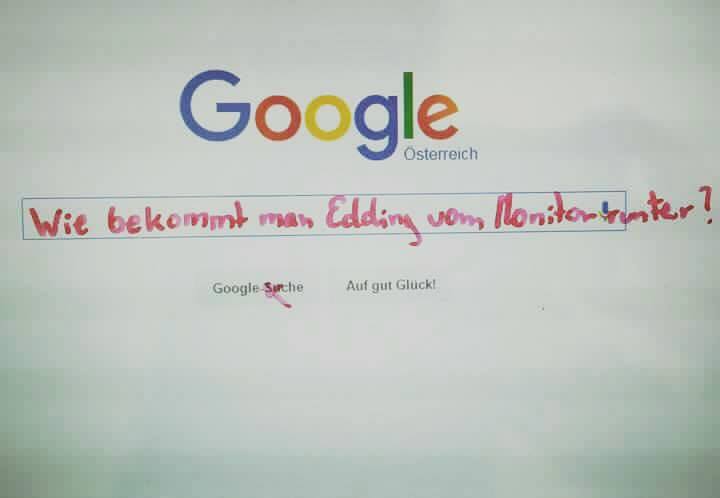 Google
Österreich
Wie bekommt man Edding vom Monitor runter?
Google-Suche
Auf gut Glück!